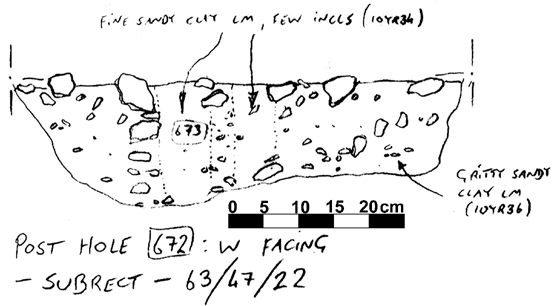 FINE SANDY CLAY LM, FEW INCLS (10YR34)
673
GRITTY SANDY
CLAY LM
(10YR36)
0 5 10 15 20cm
POST HOLE 672 : W FACING
- SUBRECT - 63/47/22